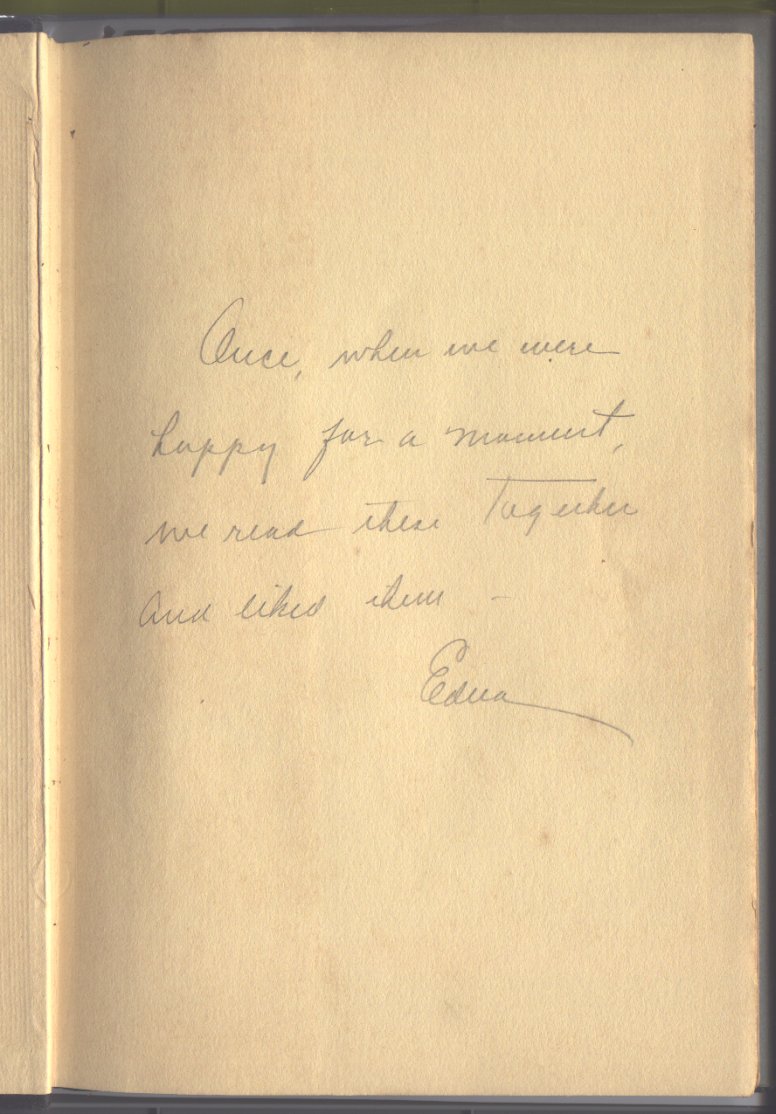 Once, when we were
happy for a moment,
we read these Together
and liked them –
Edna